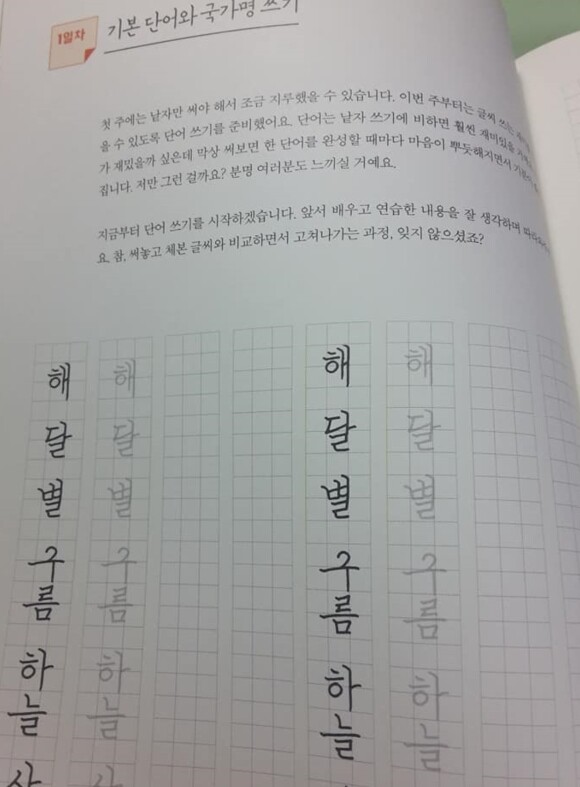 1일차
기본 단어와 국가명 쓰기
첫 주에는 낱자만 써야 해서 조금 지루했을 수 있습니다. 이번 주부터는 글씨 쓰는
을 수 있도록 단어 쓰기를 준비했어요. 단어는 낱자 쓰기에 비하면 훨씬 재미있을
가 재밌을까 싶은데 막상 써보면 한 단어를 완성할 때마다 마음이 뿌듯해지면서
집니다. 저만 그런 걸까요? 분명 여러분도 느끼실 거예요.
지금부터 단어 쓰기를 시작하겠습니다. 앞서 배우고 연습한 내용을 잘 생각하며
요. 참, 써놓고 체본 글씨와 비교하면서 고쳐나가는 과정, 잊지 않으셨죠?
해 해 해 해
달 달 달 달
별 별 별 별
구름 구름 구름 구름
하늘 하늘 하늘 하늘